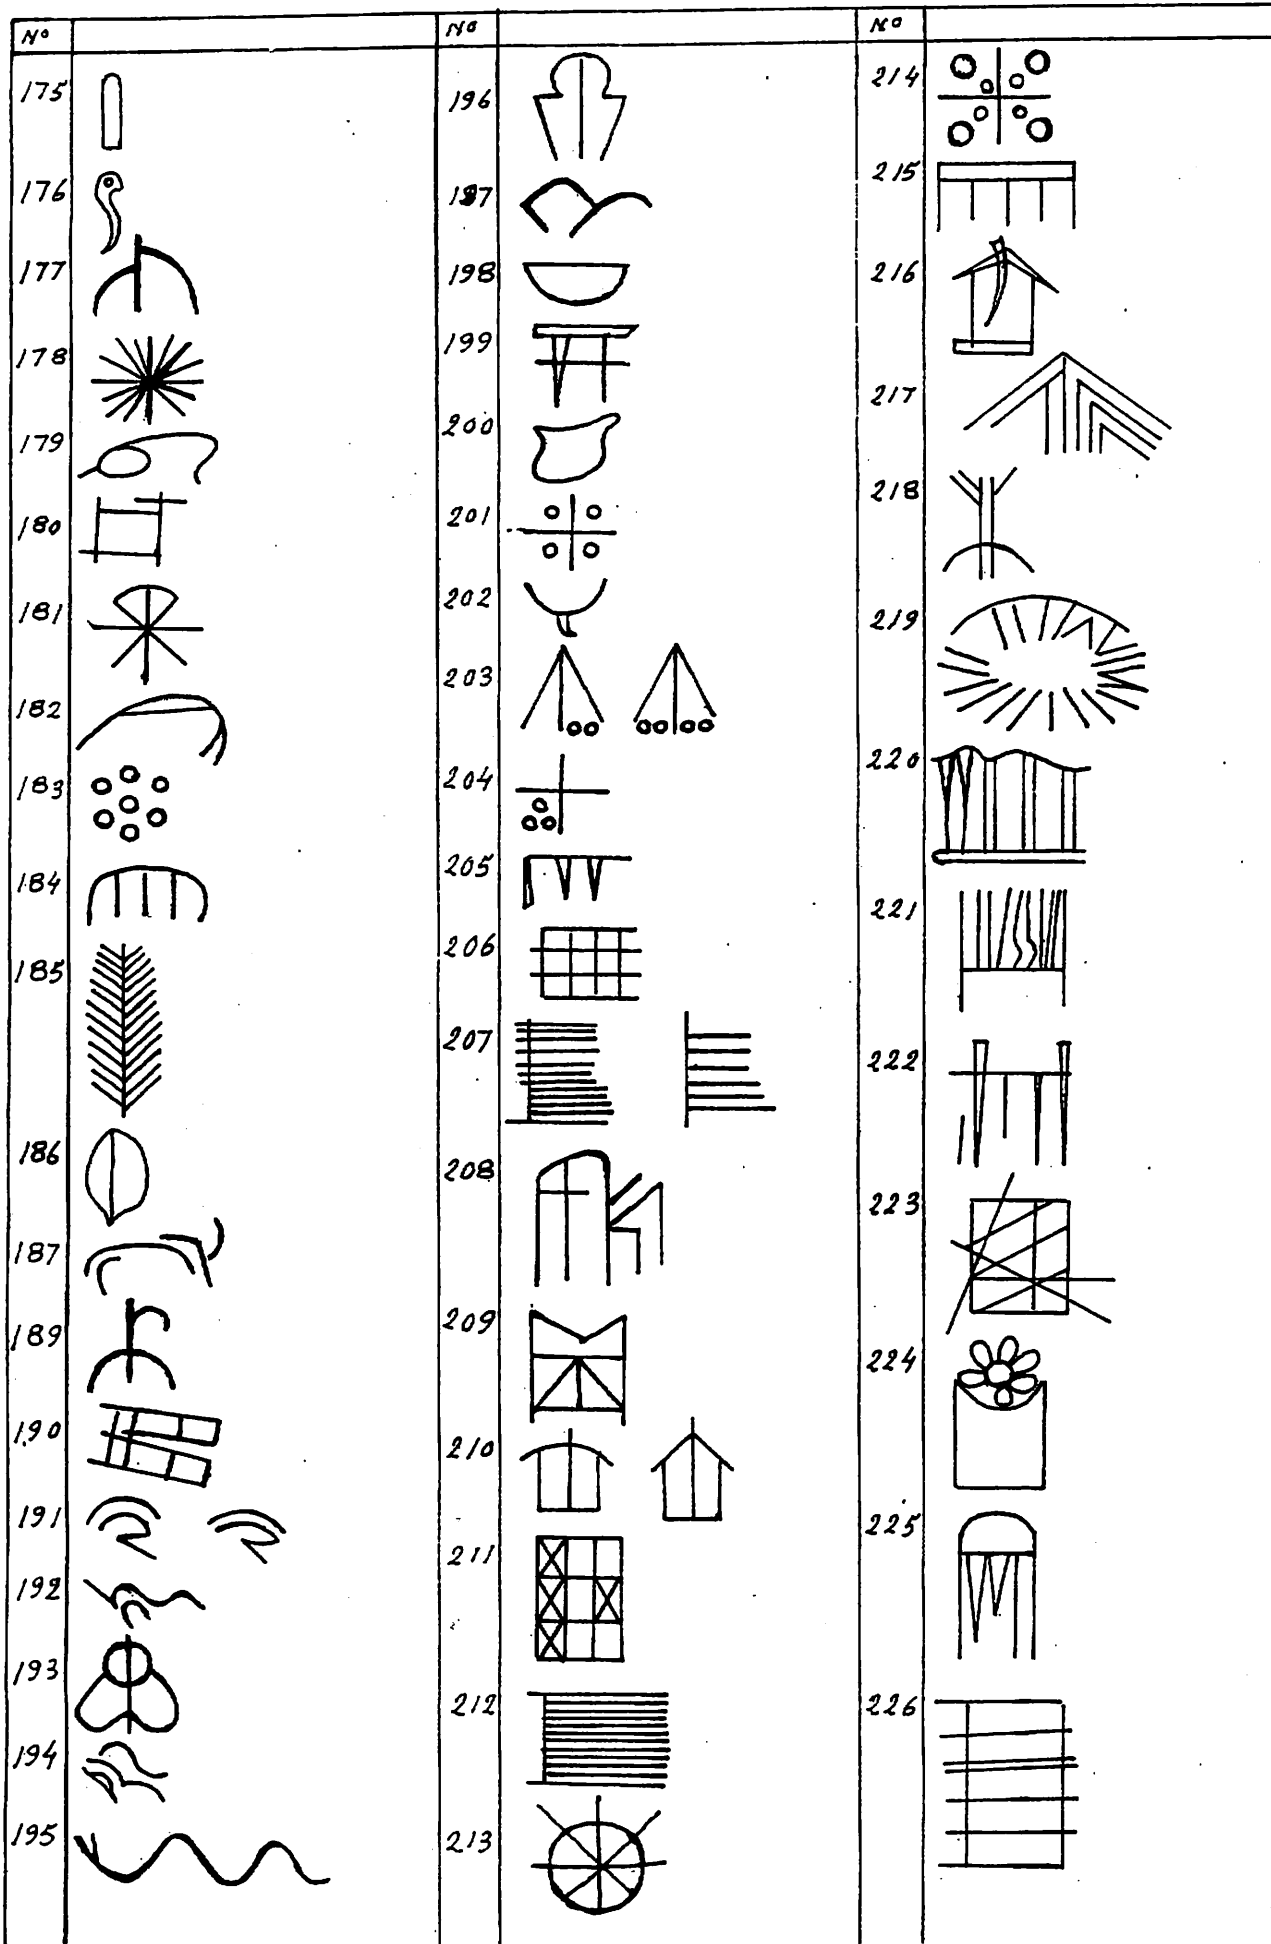 Nº
175
176
177
178
179
180
181
182
183
184
185
186
187
189
190
191
192
193
194
195
Nº
196
197
198
199
200
201
202
203
204
205
206
207
208
209
210
211
212
213
Nº
214
215
216
217
218
219
220
221
222
223
224
225
226